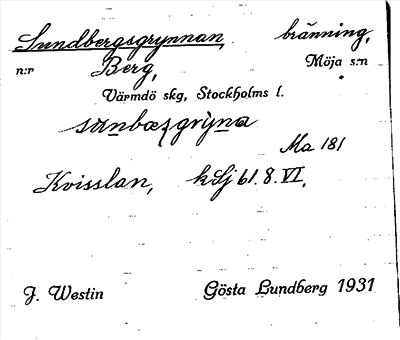 Sundbergsgrynnan, bränning,
n:r Berg, Möja s:n
Värmdö skg, Stockholms l.
Ma 181
Kvisslan, kSj 61. 8. VI.
J. Westin Gösta Lundberg 1931